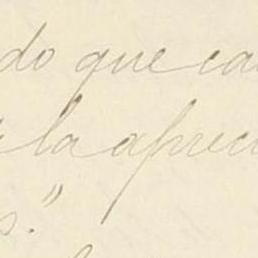 do que ca
la apreci
s."